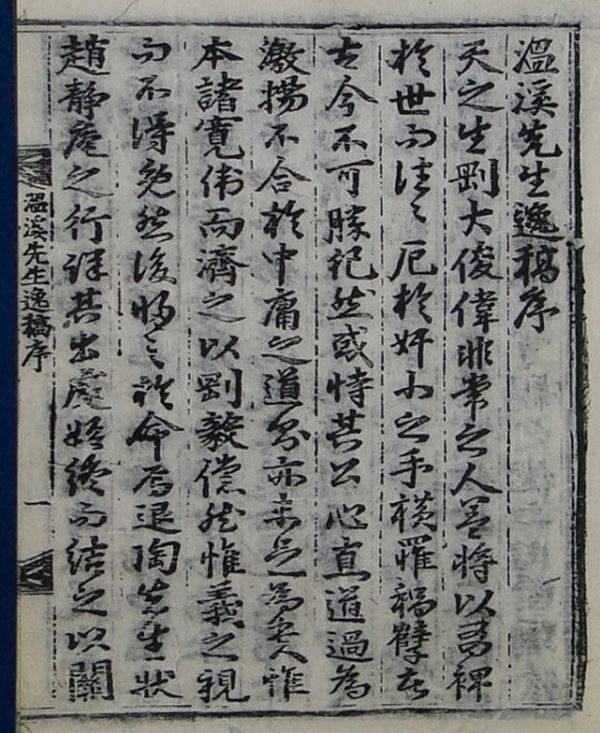 溫溪先生逸稿序
天之生剛大俊偉非常之人蓋將以有裨
於世而往々厄於奸小之手橫罹禍孽者
古今不可勝記然或恃其公心直道過為
激揚不合於中庸之道君子亦未必之為惟
本諸寬偉而濟之以剛毅儻然惟義之視
而不得免然後歸之於命焉退陶先生狀
趙靜庵之行詳其出處始終而結之以關
溫溪先生逸稿序
一